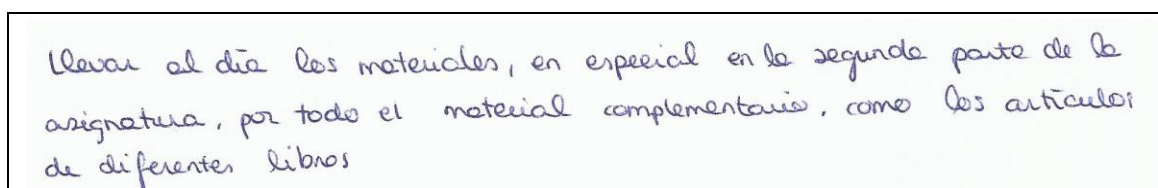 Llevar al día los materiales, en especial en la segunda parte de la
asignatura, por todo el material complementario, como los artículos
de diferentes libros